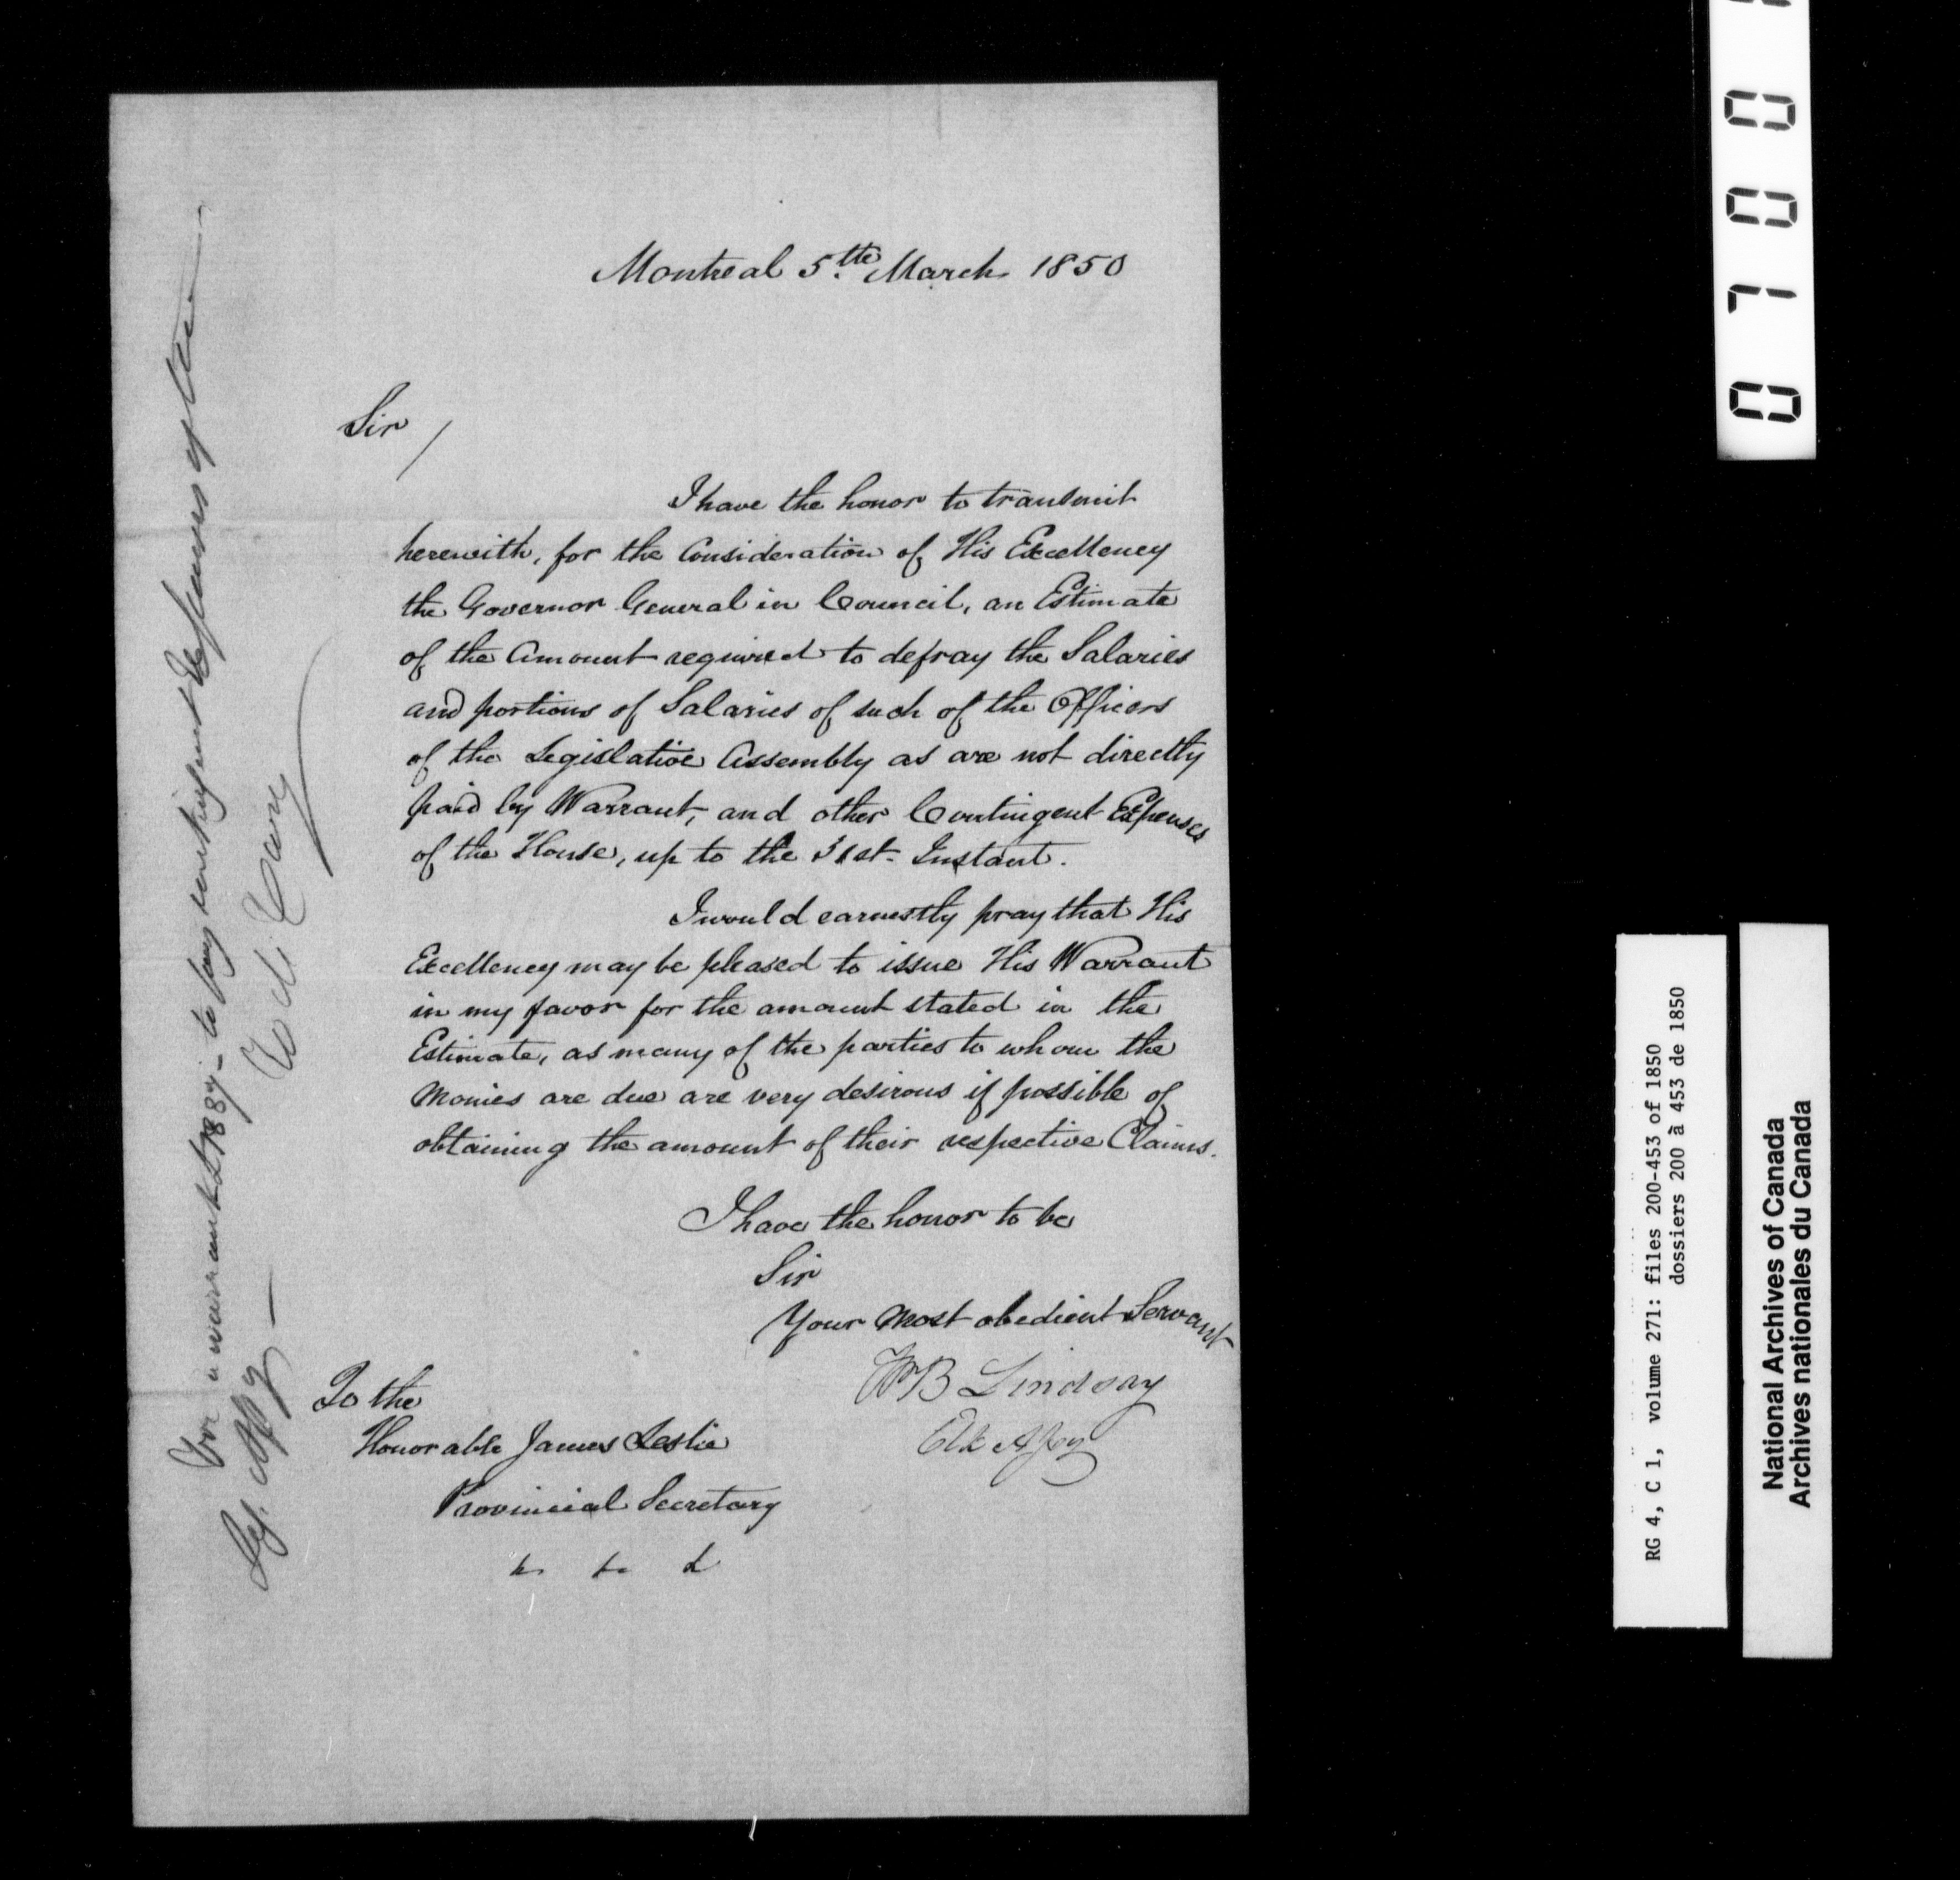 Montreal 5th March 1850
Sir /
I have the honor to transmit
herewith, for the Consideration of His Excellency
the Governor General in Council, an Estimate
of the Amount required to defray the Salaries
and portions of Salaries of such of the Officers
of the Legislative Assembly as are not directly
paid by Warrant, and other Contingent Expenses
of the House, up to the 31st Instant.
I would earnestly pray that His
Excellency may be pleased to issue His Warrant
in my favor for the amount stated in the
Estimate, as many of the parties to whom the
Monies are due are very desirous if possible of
obtaining the amount of their respective Claims.
I have the honor to be
Sir
Your Most obedient Servant
WB Lindsay
Clk Assy
To the
Honorable James Leslie
Provincial Secretary
& & &
For a warrant to pay contingent Expenses of the
Leg. Assy
0700
RG 4, C 1, volume 271: files 200-453 of 1850
dossiers 200 à 453 de 1850
National Archives of Canada
Archives nationales du Canada